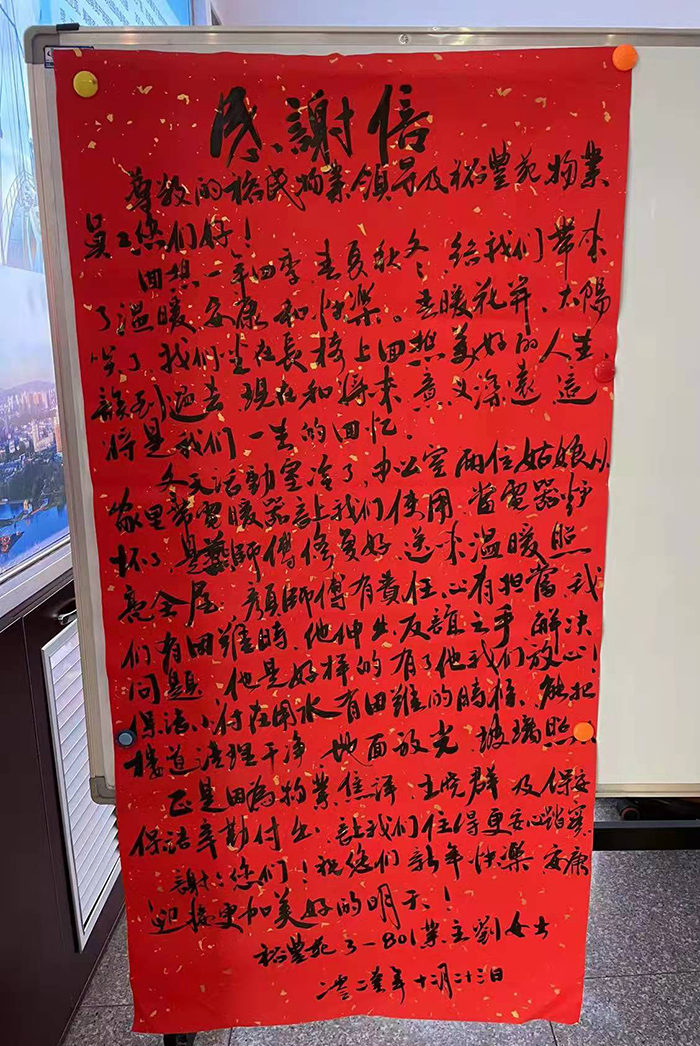 感謝信
尊敬的裕民物業領导及裕豐苑物業
員工您们好！
回想一年四季，春夏秋冬，给我们带来
了温暖、安康和快樂。春暖花开，太陽
笑了我们坐在長椅上回想美好的人生，
談到過去现在和将来意义深遠這
将是我们一生的回忆。
冬天活動室冷了，办公室兩位姑娘从
家里带電暖器讓我们使用，當電器炉
坏了是 師傅修复好，送来温暖照
亮全屋。顏師傅有責任心有担當我
们有困難時，他伸出友誼之手解决
问題，他是好樣的有了他我们放心！
保洁小付在用水有困難的時候，能把
樓道清理干净，地面放光，玻璃照人
正是因為物業焦 、王晓群及保安
保洁辛勤付出，讓我们住得更安心踏實
謝：您们！祝您们新年快樂安康
迎接更加美好的明天！
裕豐苑3-801業主劉女士
年十二月二十三日